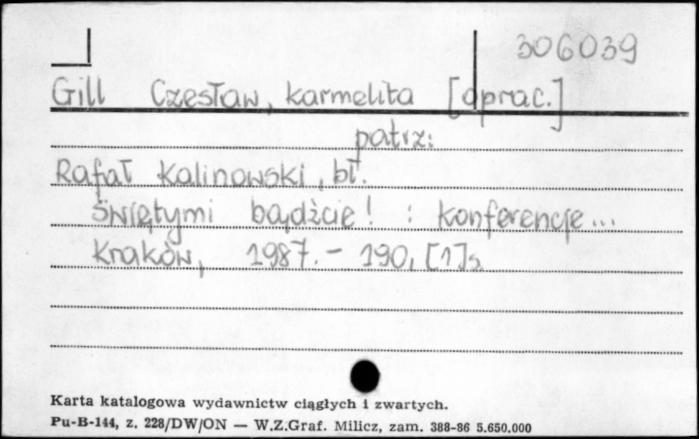 306039
Gill Czesław, karmelita [oprac.]
patrz:
Rafał Kalinowski, bł.
Świętymi bądźcie! : konferencje...
Kraków, 1987. - 190, [1] s.
Karta katalogowa wydawnictw ciągłych i zwartych.
Pu-B-144, z. 228/DW/ON — W.Z.Graf. Milicz, zam. 388-86 5.650.000